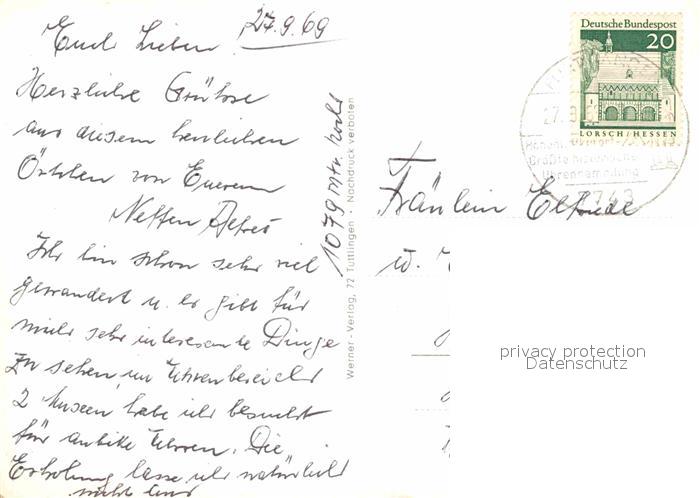 27.9.69
Euch Lieben
Herzliche Grüsse
aus diesem herrlichen
Örtchen von Euerem
Neffen
Ich bin schon sehr viel
gewandert u. es gibt für
mich sehr interesante Dinge
zu sehen, im Uhrenbereich
2 Museen habe ich besucht
für antike Uhren. Die
Erholung lasse ich natürlich
nicht aus
1079 mtr. hoch
Werner-Verlag, 72 Tuttlingen · Nachdruck verboten
Deutsche Bundespost
20
LORSCH/HESSEN
27.9.
Größte historische
Uhrensammlung
Fräulein Elfriede
u.
privacy protection
Datenschutz